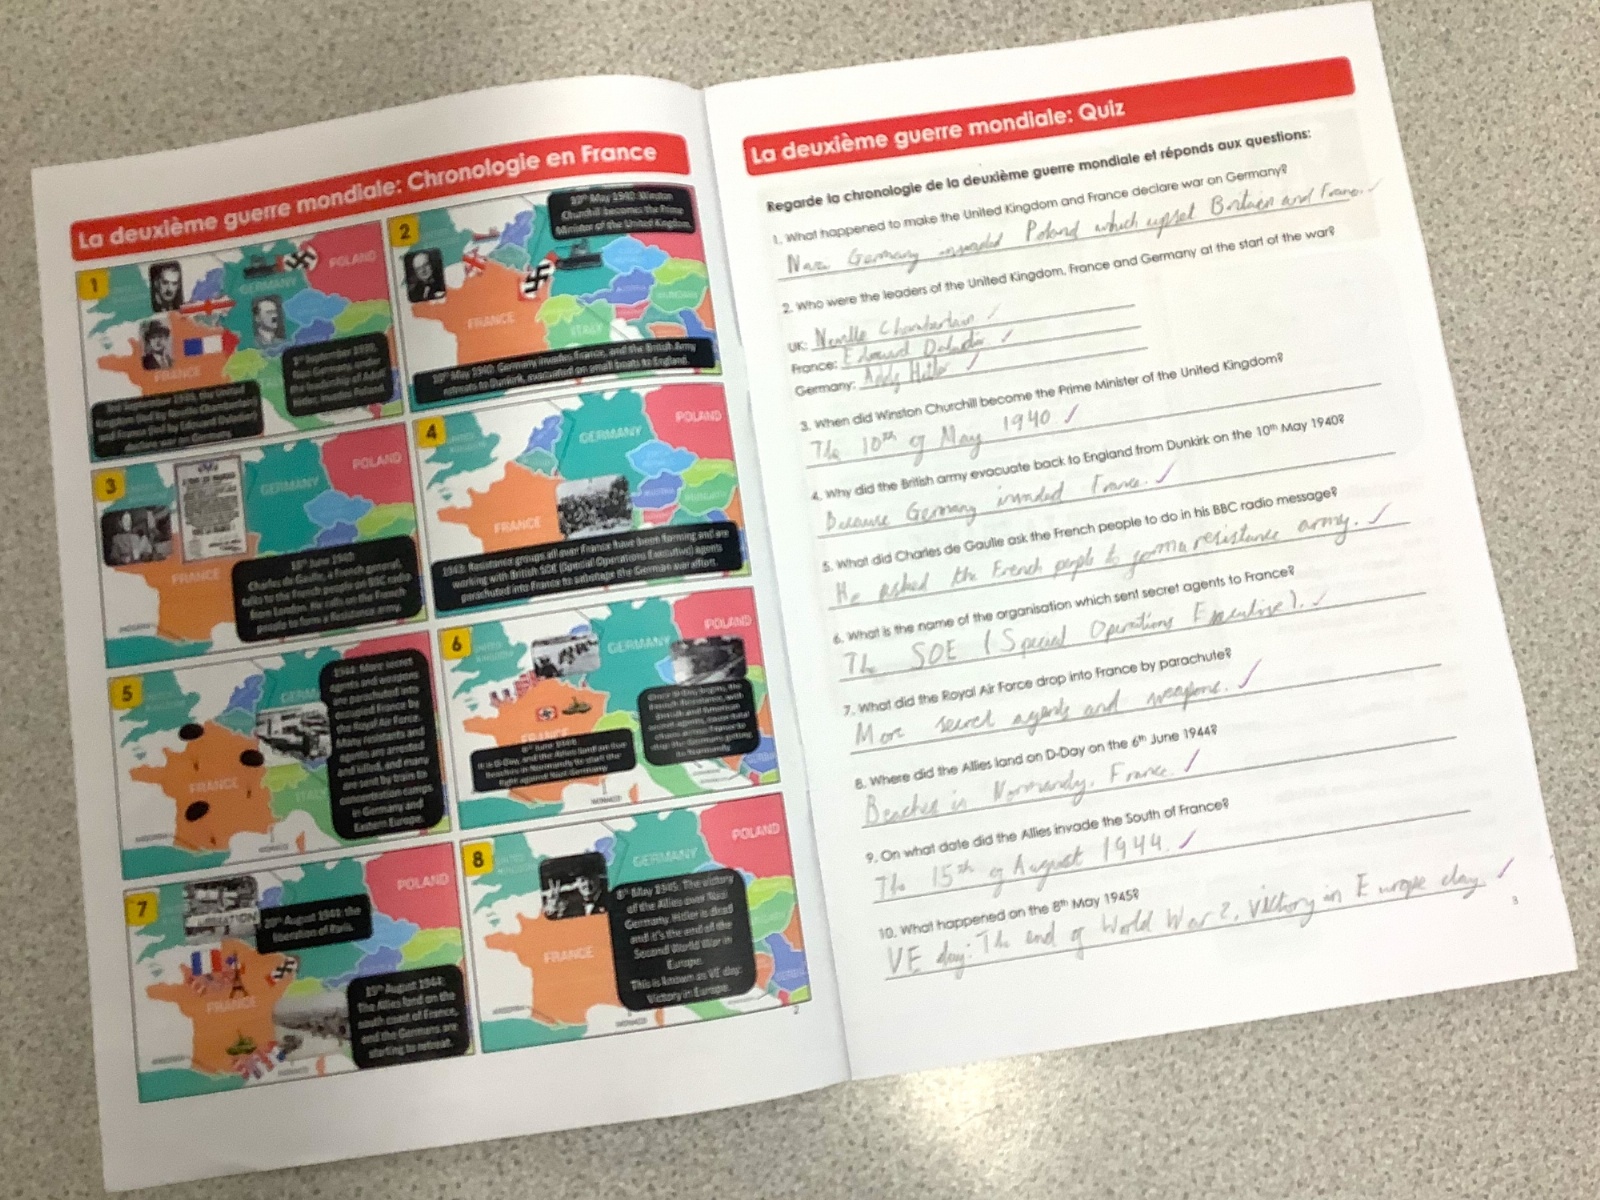 La deuxième guerre mondiale: Chronologie en France
1
POLAND
GERMANY
FRANCE
1st September 1939,
Nazi Germany, under
the leadership of Adolf
Hitler, invades Poland
3rd September 1939, the United
Kingdom (led by Neville Chamberlain)
and France (led by Edouard Daladier)
declare war on Germany.
2
10th May 1940: Winston
Churchill becomes the Prime
Minister of the United Kingdom.
FRANCE
ITALY
10th May 1940: Germany invades France, and the British Army
retreats to Dunkirk, evacuated on small boats to England.
3
POLAND
GERMANY
FRANCE
18th June 1940:
Charles de Gaulle, a French general,
talks to the French people on BBC radio
from London. He calls on the French
people to form a Resistance army.
4
POLAND
GERMANY
FRANCE
1943: Resistance groups all over France have been forming and are
working with British SOE (Special Operations Executive) agents
parachuted into France to sabotage the German war effort.
5
GERM
FRANCE
ITALY
1944: More secret
agents and weapons
are parachuted into
occupied France by
the Royal Air Force.
Many resistants and
agents are arrested
and killed, and many
are sent by train to
concentration camps
in Germany and
Eastern Europe.
6
POLAND
GERMANY
FRANCE
6th June 1944:
It is D-Day, and the Allies land on five
beaches in Normandy to start the
fight against Nazi Germany.
Once D-Day begins, the
French Resistance, with
British and American
secret agents,
across France to
stop the Germans getting
to Normandy.
MONACO
7
POLAND
LIBERATION
20th August 1944: the
liberation of Paris.
FRANCE
15th August 1944:
The Allies land on the
south coast of France,
and the Germans are
starting to retreat.
MONACO
8
POLAND
GERMANY
FRANCE
8th May 1945: The victory
of the Allies over Nazi
Germany. Hitler is dead
and it's the end of the
Second World War in
Europe.
This is known as VE day:
Victory in Europe.
MONACO
2
La deuxième guerre mondiale: Quiz
Regarde la chronologie de la deuxième guerre mondiale et réponds aux questions:
1. What happened to make the United Kingdom and France declare war on Germany?
Nazi Germany invaded Poland which upset Britain and France.
2. Who were the leaders of the United Kingdom, France and Germany at the start of the war?
UK: Neville Chamberlain
France: Edouard Daladier
Germany: Addy Hitler
3. When did Winston Churchill become the Prime Minister of the United Kingdom?
The 10th of May 1940
4. Why did the British army evacuate back to England from Dunkirk on the 10th May 1940?
Because Germany invaded France.
5. What did Charles de Gaulle ask the French people to do in his BBC radio message?
He asked the French people to form a resistance army.
6. What is the name of the organisation which sent secret agents to France?
The SOE (Special Operations Executive).
7. What did the Royal Air Force drop into France by parachute?
More secret agents and weapons.
8. Where did the Allies land on D-Day on the 6th June 1944?
Beaches in Normandy, France.
9. On what date did the Allies invade the South of France?
The 15th of August 1944.
10. What happened on the 8th May 1945?
VE day: The end of World War 2, victory in Europe day.
3